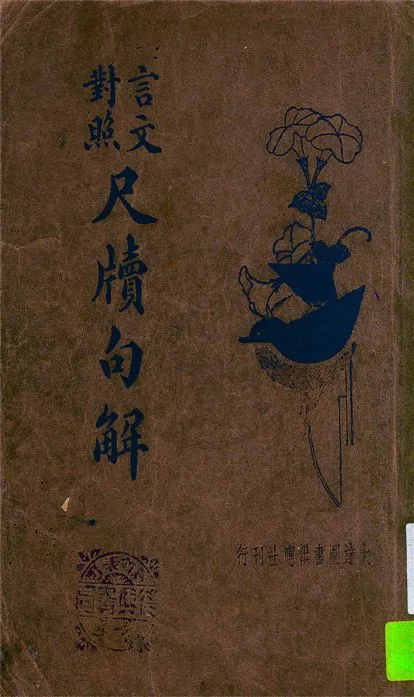 言文
對照
尺牘句解
大達圖書供應社刊行